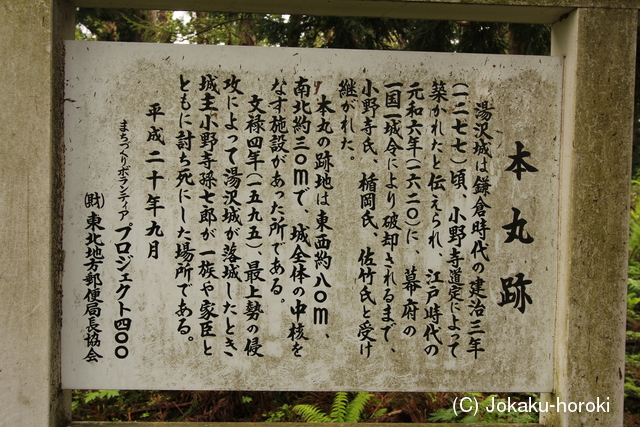 本丸跡
湯沢城は鎌倉時代の建治三年
(一二七七)頃、小野寺道定によって
築かれたと伝えられ、江戸時代の
元和六年(一六二〇)に、幕府の
一国一城令により破却されるまで、
小野寺氏、楯岡氏、佐竹氏と受け
継がれた。
本丸の跡地は東西約八〇m、
南北約三〇mで、城全体の中核を
なす施設があった所である。
文禄四年(一五九五)、最上勢の侵
攻によって湯沢城が落城したときさ
城主小野寺孫七郎が一族や家臣と
ともに討ち死にした場所である。
平成二十年九月
まちづくりボランティア プロジェクト四〇〇
(財)東北地方郵便局長協会
(C) Jokaku-horoki